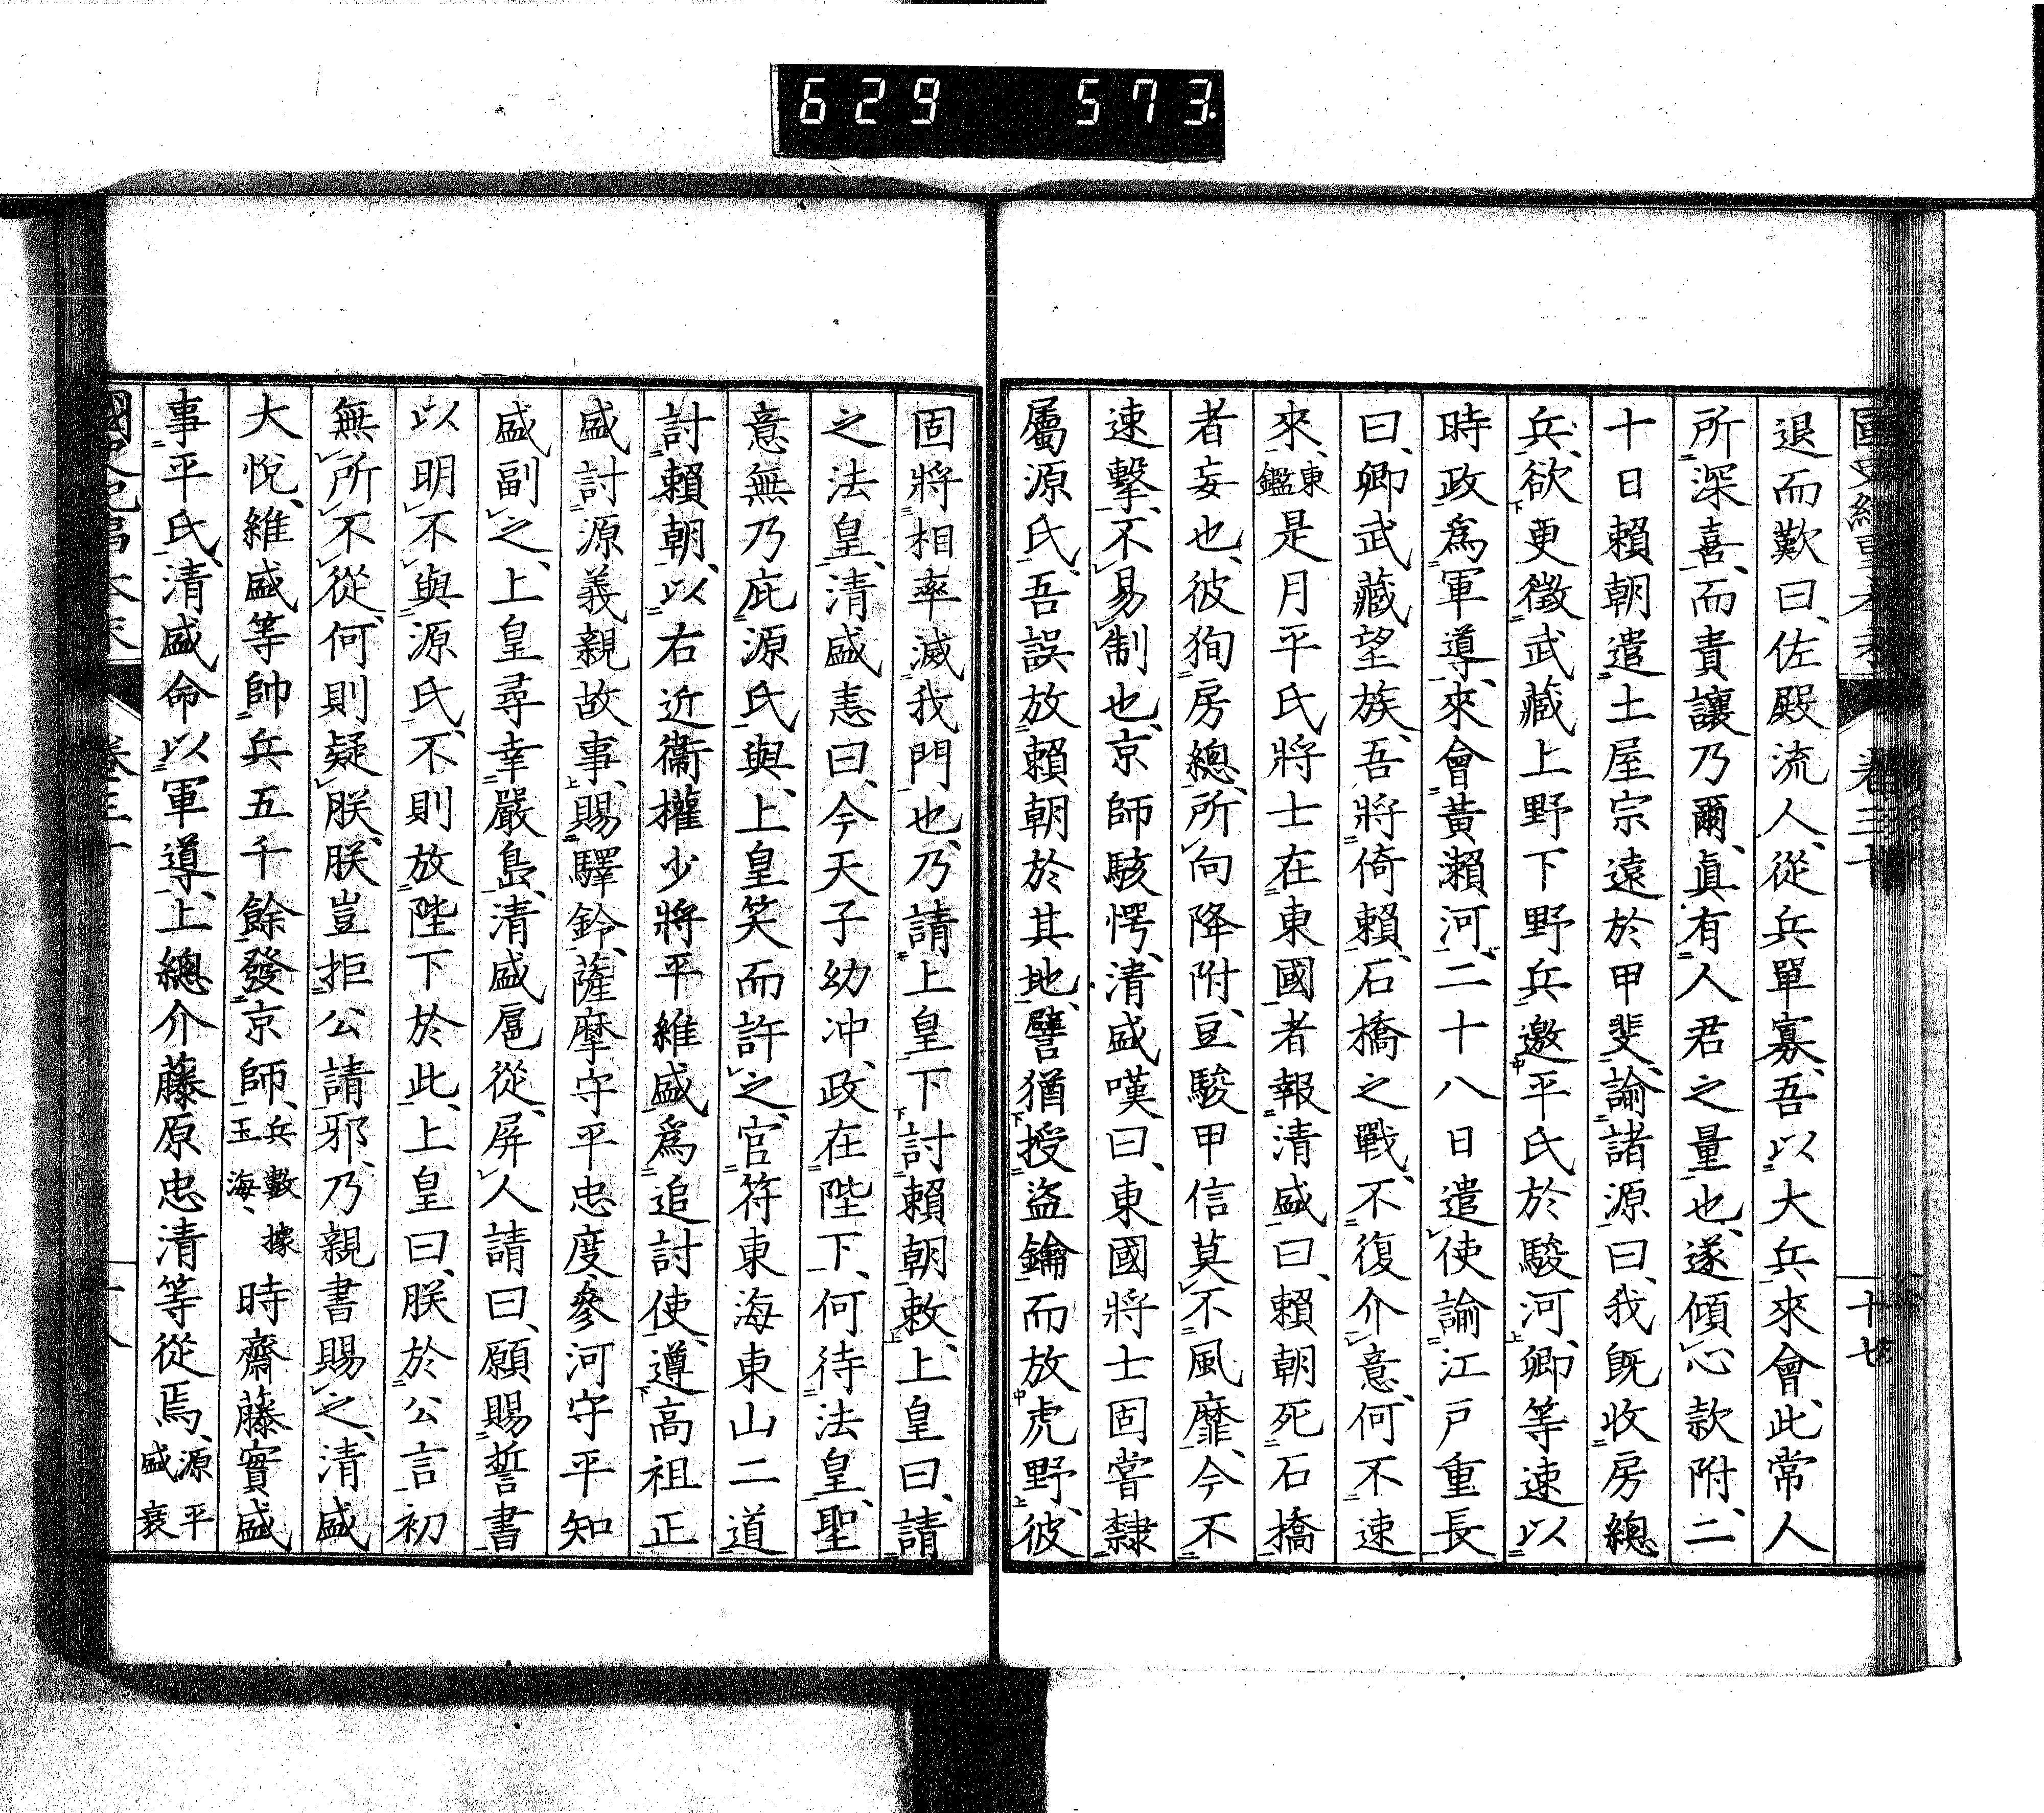 629 573.
十七
退而歎曰、佐殿流人、從兵單寡、吾以大兵來會、此常人
所深喜、而責讓乃爾、眞有人君之量也、遂傾心款附、二
十日賴朝遣土屋宗遠於甲斐、諭諸源曰、我既收房總
兵、欲更徵武藏上野下野兵、邀平氏於駿河、卿等速以
時政爲軍導、來會黃瀨河、二十八日遣使諭江戸重長
曰、卿武藏望族、吾將倚賴、石橋之戰、不復介意、何不速
來、東鑑是月平氏將士在東國者報清盛曰、賴朝死石橋
者妄也、彼徇房總、所向降附、豆駿甲信莫不風靡、今不
速擊、不易制也、京師駭愕、清盛嘆曰、東國將士固嘗隸
屬源氏、吾誤放賴朝於其地、譬猶授盜鑰而放虎野、彼
固將相率滅我門也、乃請上皇下討賴朝敕、上皇曰、請
之法皇、清盛恚曰、今天子幼冲、政在陛下、何待法皇、聖
意無乃庇源氏與、上皇笑而許之、官符東海東山二道
討賴朝、以右近衞權少將平維盛爲追討使、遵高祖正
盛討源義親故事、賜驛鈴、薩摩守平忠度參河守平知
盛副之、上皇尋幸嚴島、清盛扈從、屏人請曰、願賜誓書
以明不與源氏、不則放陛下於此、上皇曰、朕於公言初
無所不從、何則疑朕、朕豈拒公請邪、乃親書賜之、清盛
大悅、維盛等帥兵五千餘發京師、兵數據玉海、時齋藤實盛
事平氏、清盛命以軍導、上總介藤原忠清等從焉、源平盛衰